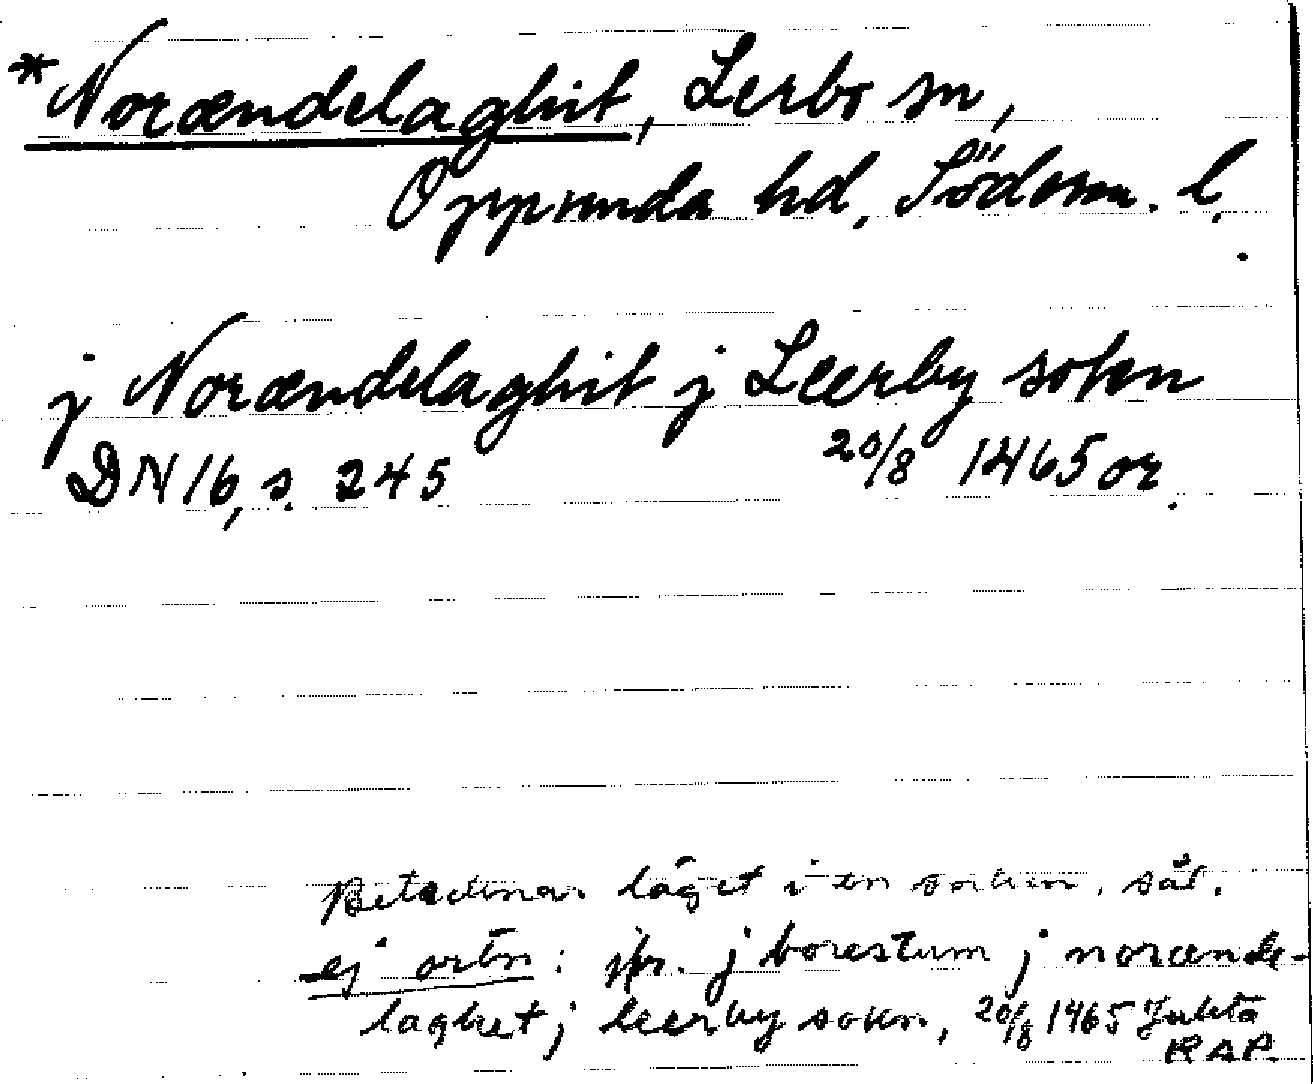 *Norændelaghit, Lerbo sn,
Oppunda hd, Söderm. l.
j Norændelaghit j Leerby sokn
DN 16, s. 245 20/8 1465 or.
Betecknar läget i en socken, sål.
ej ortn: jfr. j borestum j norænde-
laghet j leerby sokn, 20/8 1465 Julita
RAP.